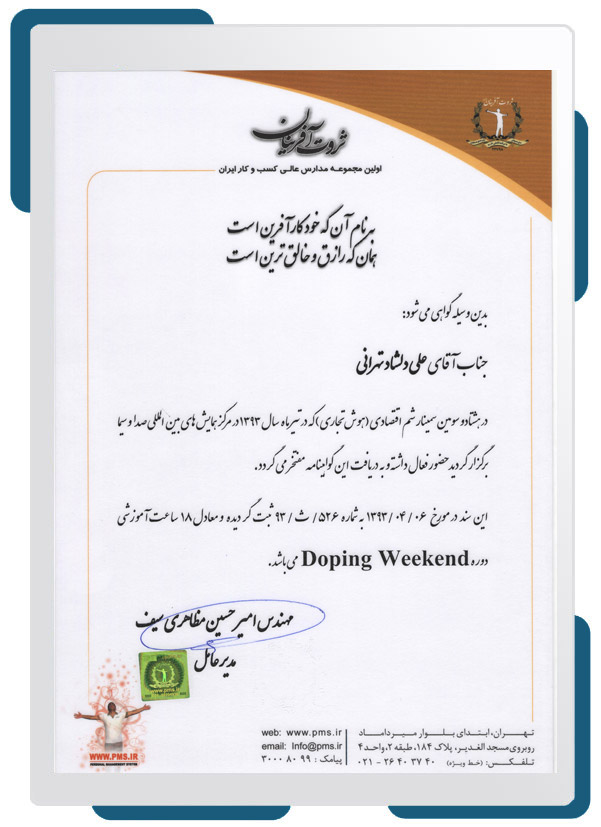 ثروت آفرینان
ثروت آفرینان
اولین مجموعه مدارس عالی کسب و کار ایران
به نام آن که خود کارآفرین است
همان که رازق و خالق ترین است
بدین وسیله گواهی می شود:
جناب آقای علی دلشاد تهرانی
در هشتاد و سومین سمینار شم اقتصادی (هوش تجاری) که در تیر ماه سال ۱۳۹۳ در مرکز همایش های بین المللی صدا و سیما
برگزار گردید حضور فعال داشته و به دریافت این گواهینامه مفتخر می گردد.
این سند در مورخ ۱۳۹۳/۰۴/۰۶ به شماره ۵۲۶/ث/۹۳ ثبت گردیده و معادل ۱۸ ساعت آموزشی
دوره Doping Weekend می باشد.
مهندس امیرحسین مظاهری سیف
مدیر عامل
www.pms.ir
WWW.PMS.IR
PERSONAL MANAGEMENT SYSTEM
web: www.pms.ir
email: info@pms.ir
پیامک: ۳۰۰۰۸۰۹۹
تهران، ابتدای بلوار میرداماد
روبروی مسجد الغدیر، پلاک ۱۸۴، طبقه ۲، واحد ۴
تلفکس: (خط ویژه) ۰۲۱-۲۶۴۰۳۷۴۰